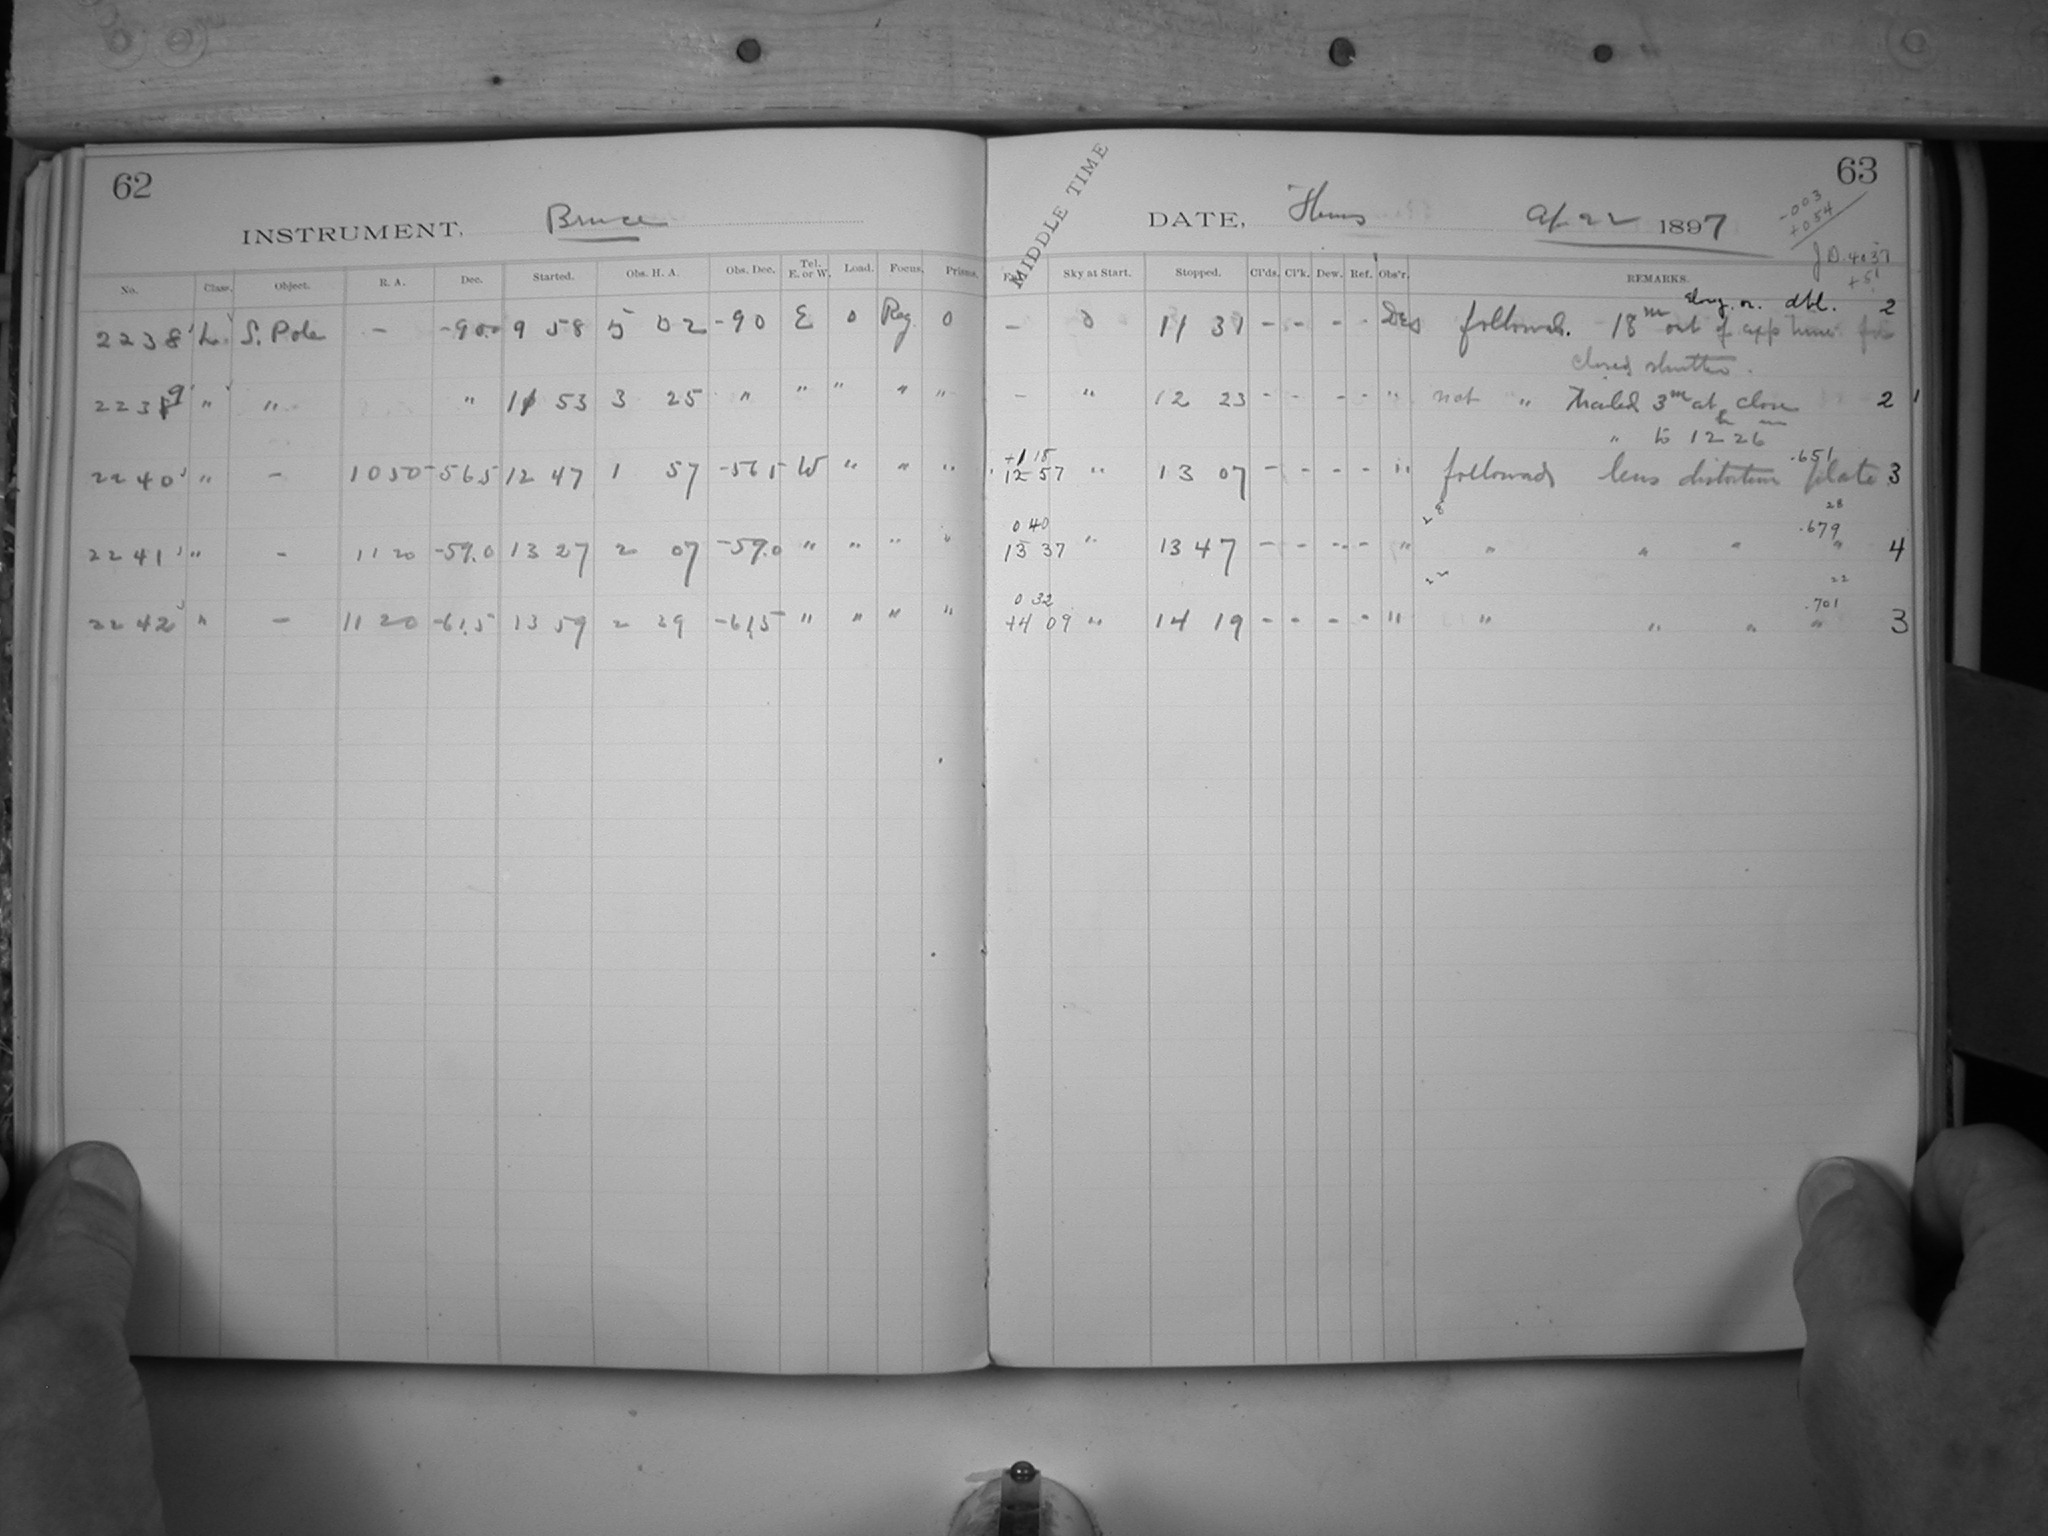 62
INSTRUMENT, Bruce
No. Class. Object. R. A. Dec. Started. Obs. H. A. Obs. Dec. Tel. E. or W. Load. Focus. Prisms.
2238 L. S. Pole - -90.0 9 58 5 02 -90 E 0 Reg 0
2239 " " " 11 53 3 25 " " " " "
2240 " - 10 50 -56.5 12 47 1 57 -56.5 W " " "
2241 " - 11 20 -59.0 13 27 2 07 -59.0 " " " "
2242 " - 11 20 -61.5 13 59 2 39 -61.5 " " " "
63
MIDDLE TIME
DATE, Thurs Ap 22 1897
-003
+054
J.D. 4037
+51
Sky at Start. Stopped. Cl'ds. Cl'k. Dew. Ref. Obs'r. REMARKS.
elong. or. dbl. 2
- 0 11 31 - - - - followed. 18m out of app time for
closed shutter.
- " 12 23 - - - - " not " Trailed 3m at close 2 1
" to 12h 26m
+1 15 .651
12 57 " 13 07 - - - - " followed lens distortion plate 3
28 28
0 40 .679
13 37 " 13 47 - - - - " " " " " 4
22 22
0 32 .701
14 09 " 14 19 - - - - " " " " " 3